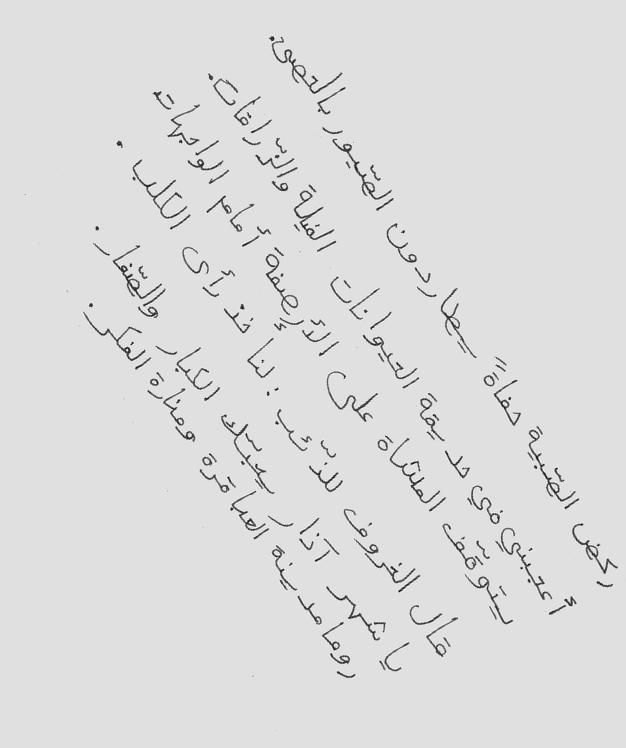 ركض الصّبية حفاةً يطاردون الطّيور بالحصى.
أعجبني في حديقة الحيوانات الفيلة والزّرافات.
يتوقّف المشاة على الأرصفة أمام الواجهات
قال الخروف للذّئب : لنا خذ رأى الكلب .
يا شهر آذار يحبّك الكبار والصّغار .
روما مدينة العباقرة ومنارة الفكر .